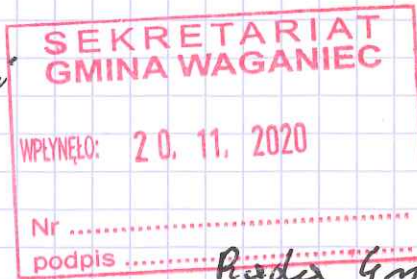 SEKRETARIAT
GMINA WAGANIEC
WPŁYNĘŁO: 20. 11. 2020
Nr ..........................................
podpis ..........................................
Rada